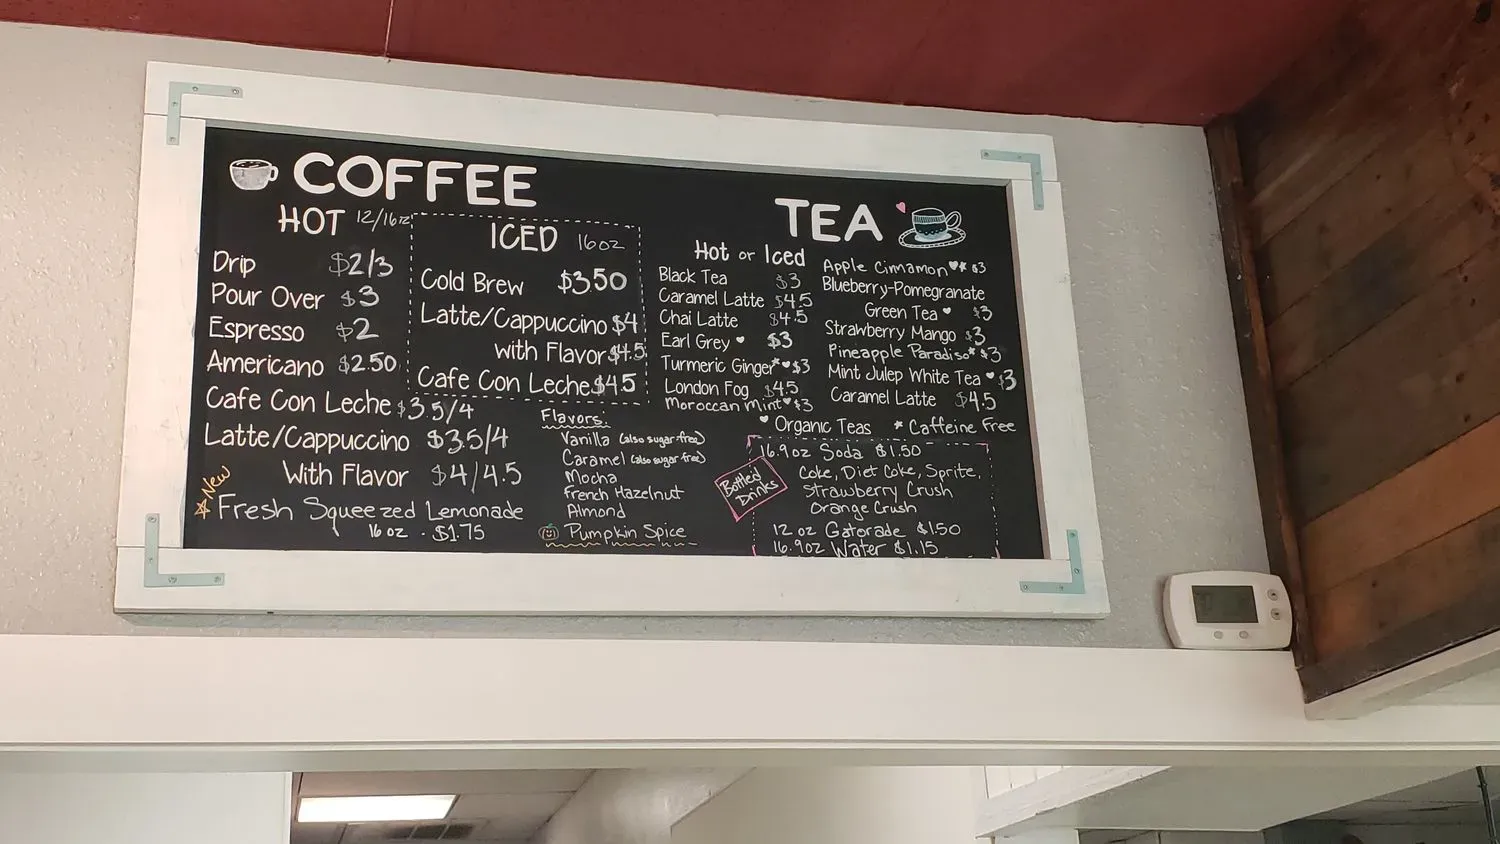 COFFEE
HOT 12/16oz
Drip $2/3
Pour Over $3
Espresso $2
Americano $2.50
Cafe Con Leche $3.5/4
Latte/Cappuccino $3.5/4
With Flavor $4/4.5
New
Fresh Squeezed Lemonade
16 oz . $1.75
ICED 16oz
Cold Brew $3.50
Latte/Cappuccino $4
with Flavor $4.5
Cafe Con Leche $4.5
Flavors:
Vanilla (also sugar free)
Caramel (also sugar free)
Mocha
French Hazelnut
Almond
Pumpkin Spice
TEA
Hot or Iced
Black Tea $3
Caramel Latte $4.5
Chai Latte $4.5
Earl Grey ♥ $3
Turmeric Ginger*♥$3
London Fog $4.5
Moroccan Mint♥$3
Apple Cinnamon♥* $3
Blueberry-Pomegranate
Green Tea ♥ $3
Strawberry Mango $3
Pineapple Paradiso* $3
Mint Julep White Tea ♥ $3
Caramel Latte $4.5
♥ Organic Teas * Caffeine Free
Bottled
Drinks
16.9oz Soda $1.50
Coke, Diet Coke, Sprite,
Strawberry Crush
Orange Crush
12 oz Gatorade $1.50
16.9oz Water $1.15